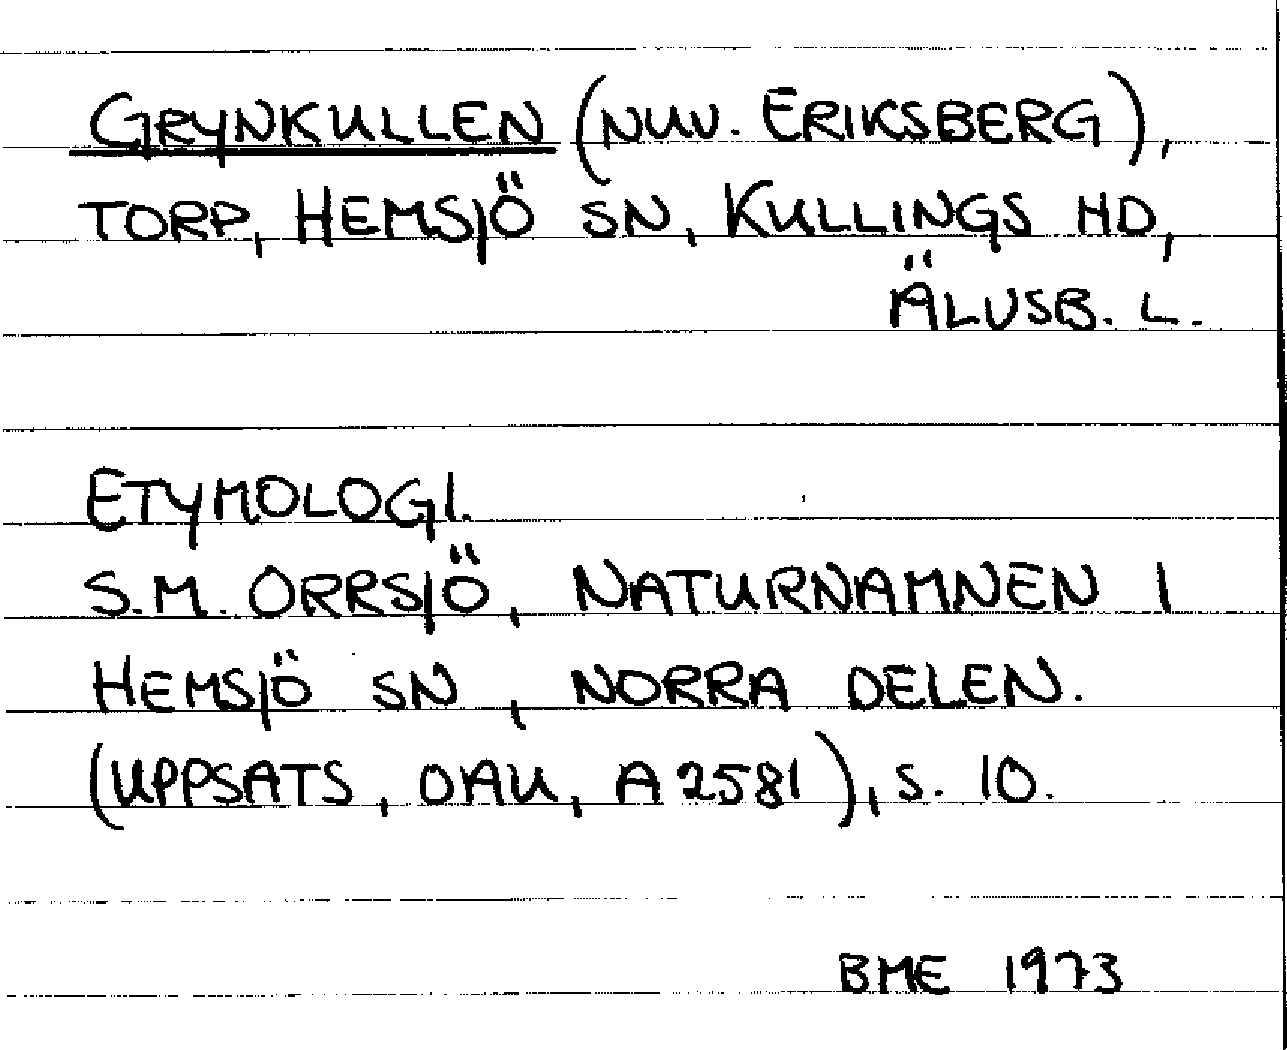 GRYNKULLEN (NUV. ERIKSBERG),
TORP, HEMSJÖ SN, KULLINGS HD,
ÄLVSB. L.
ETYMOLOGI.
S.M. ORRSJÖ, NATURNAMNEN I
HEMSJÖ SN, NORRA DELEN.
(UPPSATS, OAU, A 2581), S. 10.
BME 1973